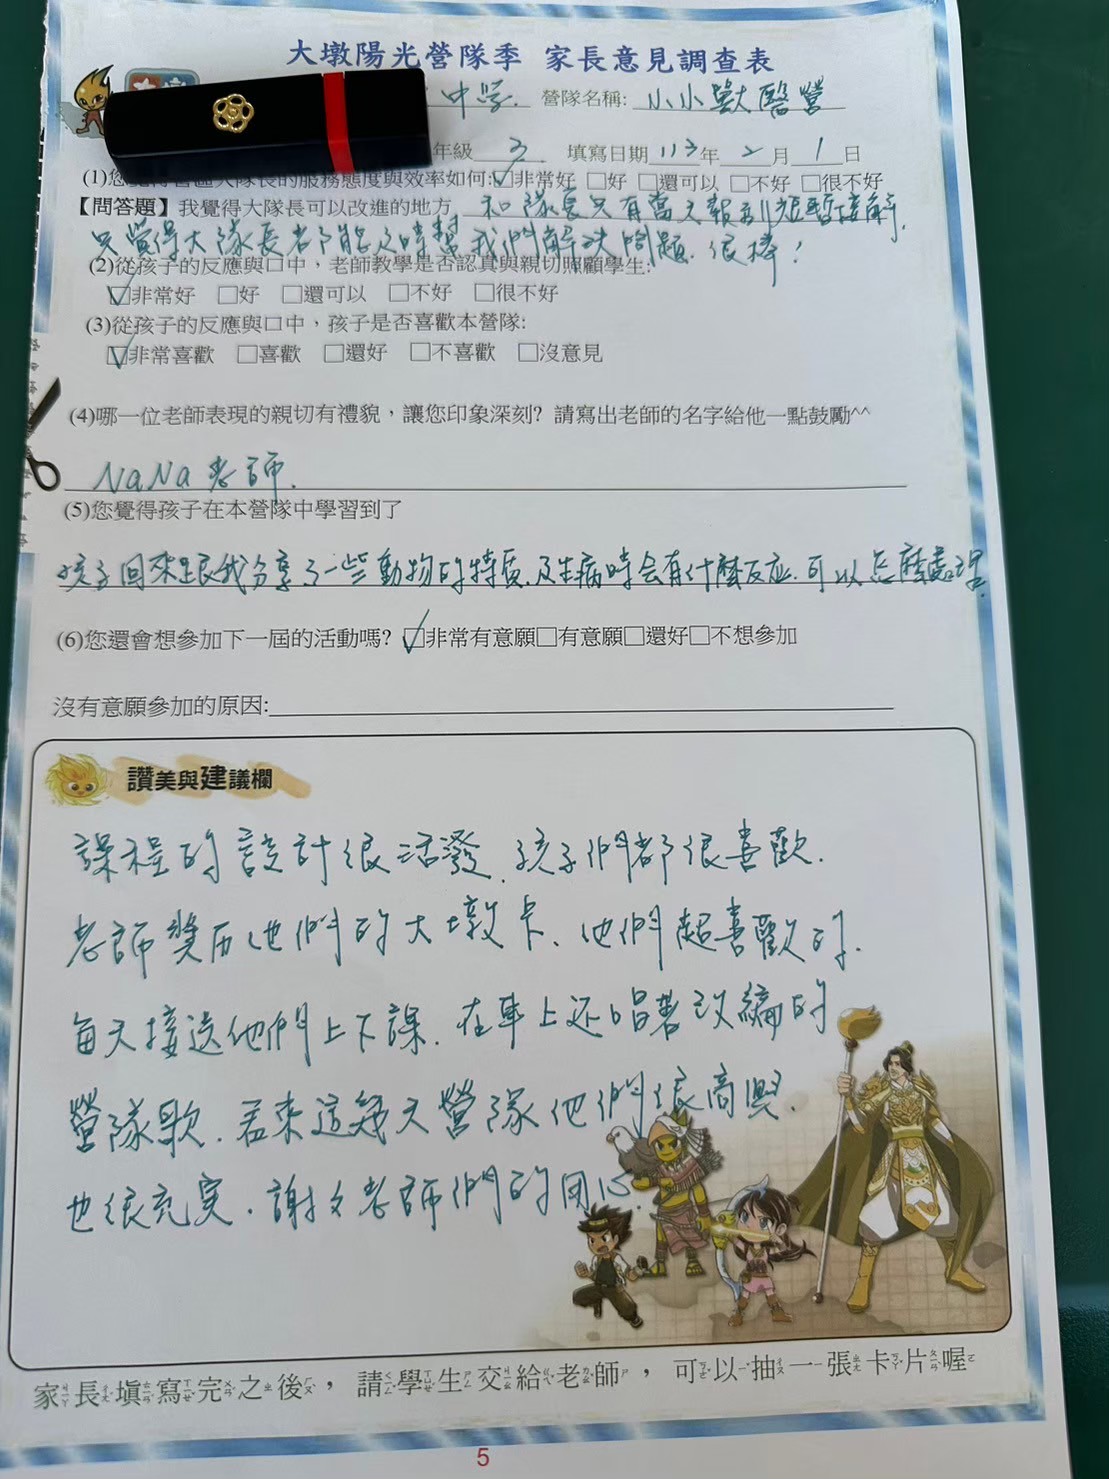 大墩陽光營隊季 家長意見調查表
中學. 營隊名稱: 小小獸醫營
年級 3 填寫日期 113 年 2 月 1 日
(1)您覺得營區大隊長的服務態度與效率如何:☑非常好 □好 □還可以 □不好 □很不好
【問答題】我覺得大隊長可以改進的地方 和隊長只有當天報到短暫接觸,
只覺得大隊長都能及時幫我們解決問題. 很棒!
(2)從孩子的反應與口中,老師教學是否認真與親切照顧學生:
☑非常好 □好 □還可以 □不好 □很不好
(3)從孩子的反應與口中,孩子是否喜歡本營隊:
☑非常喜歡 □喜歡 □還好 □不喜歡 □沒意見
(4)哪一位老師表現的親切有禮貌,讓您印象深刻? 請寫出老師的名字給他一點鼓勵^^
NaNa老師.
(5)您覺得孩子在本營隊中學習到了
孩子回來跟我分享了一些動物的特質,及生病時会有什麼反应.可以怎麼處理.
(6)您還會想參加下一屆的活動嗎? ☑非常有意願□有意願□還好□不想參加
沒有意願參加的原因:
讚美與建議欄
課程的設計很活潑, 孩子們都很喜歡.
老師獎历他們的大墩卡、他們超喜歡的.
每天接送他們上下課. 在車上还唱著改編的
營隊歌. 看來這幾天營隊他們很高興.
也很充実. 謝々老師們的用心.
家長填寫完之後,請學生交給老師,可以抽一張卡片喔
5